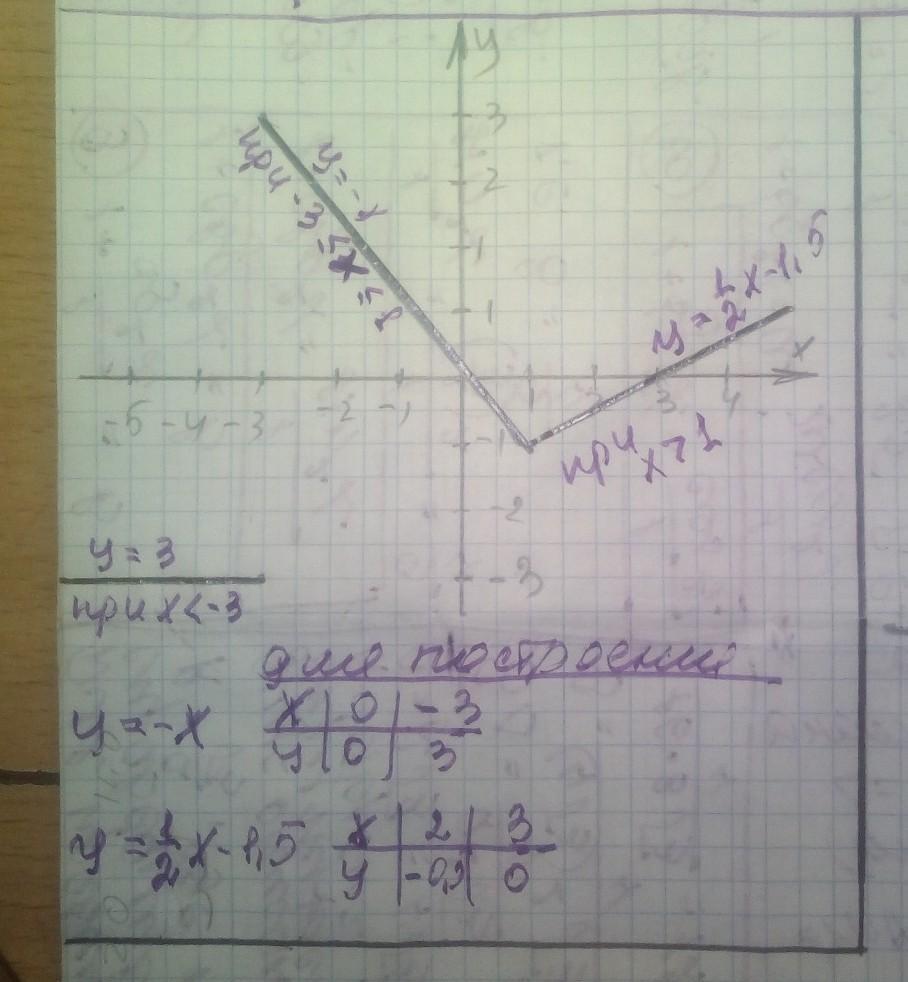 y
3
2
1
y=-x
при -3≤x≤1
1
y=1/2x-1,5
x
-5 -4 -3 -2 -1 1 2 3 4
-1
при x>1
-2
-3
y=3
при x<-3
для построения
y=-x x 0 -3
y 0 3
y=1/2x-1,5 x 2 3
y -0,5 0